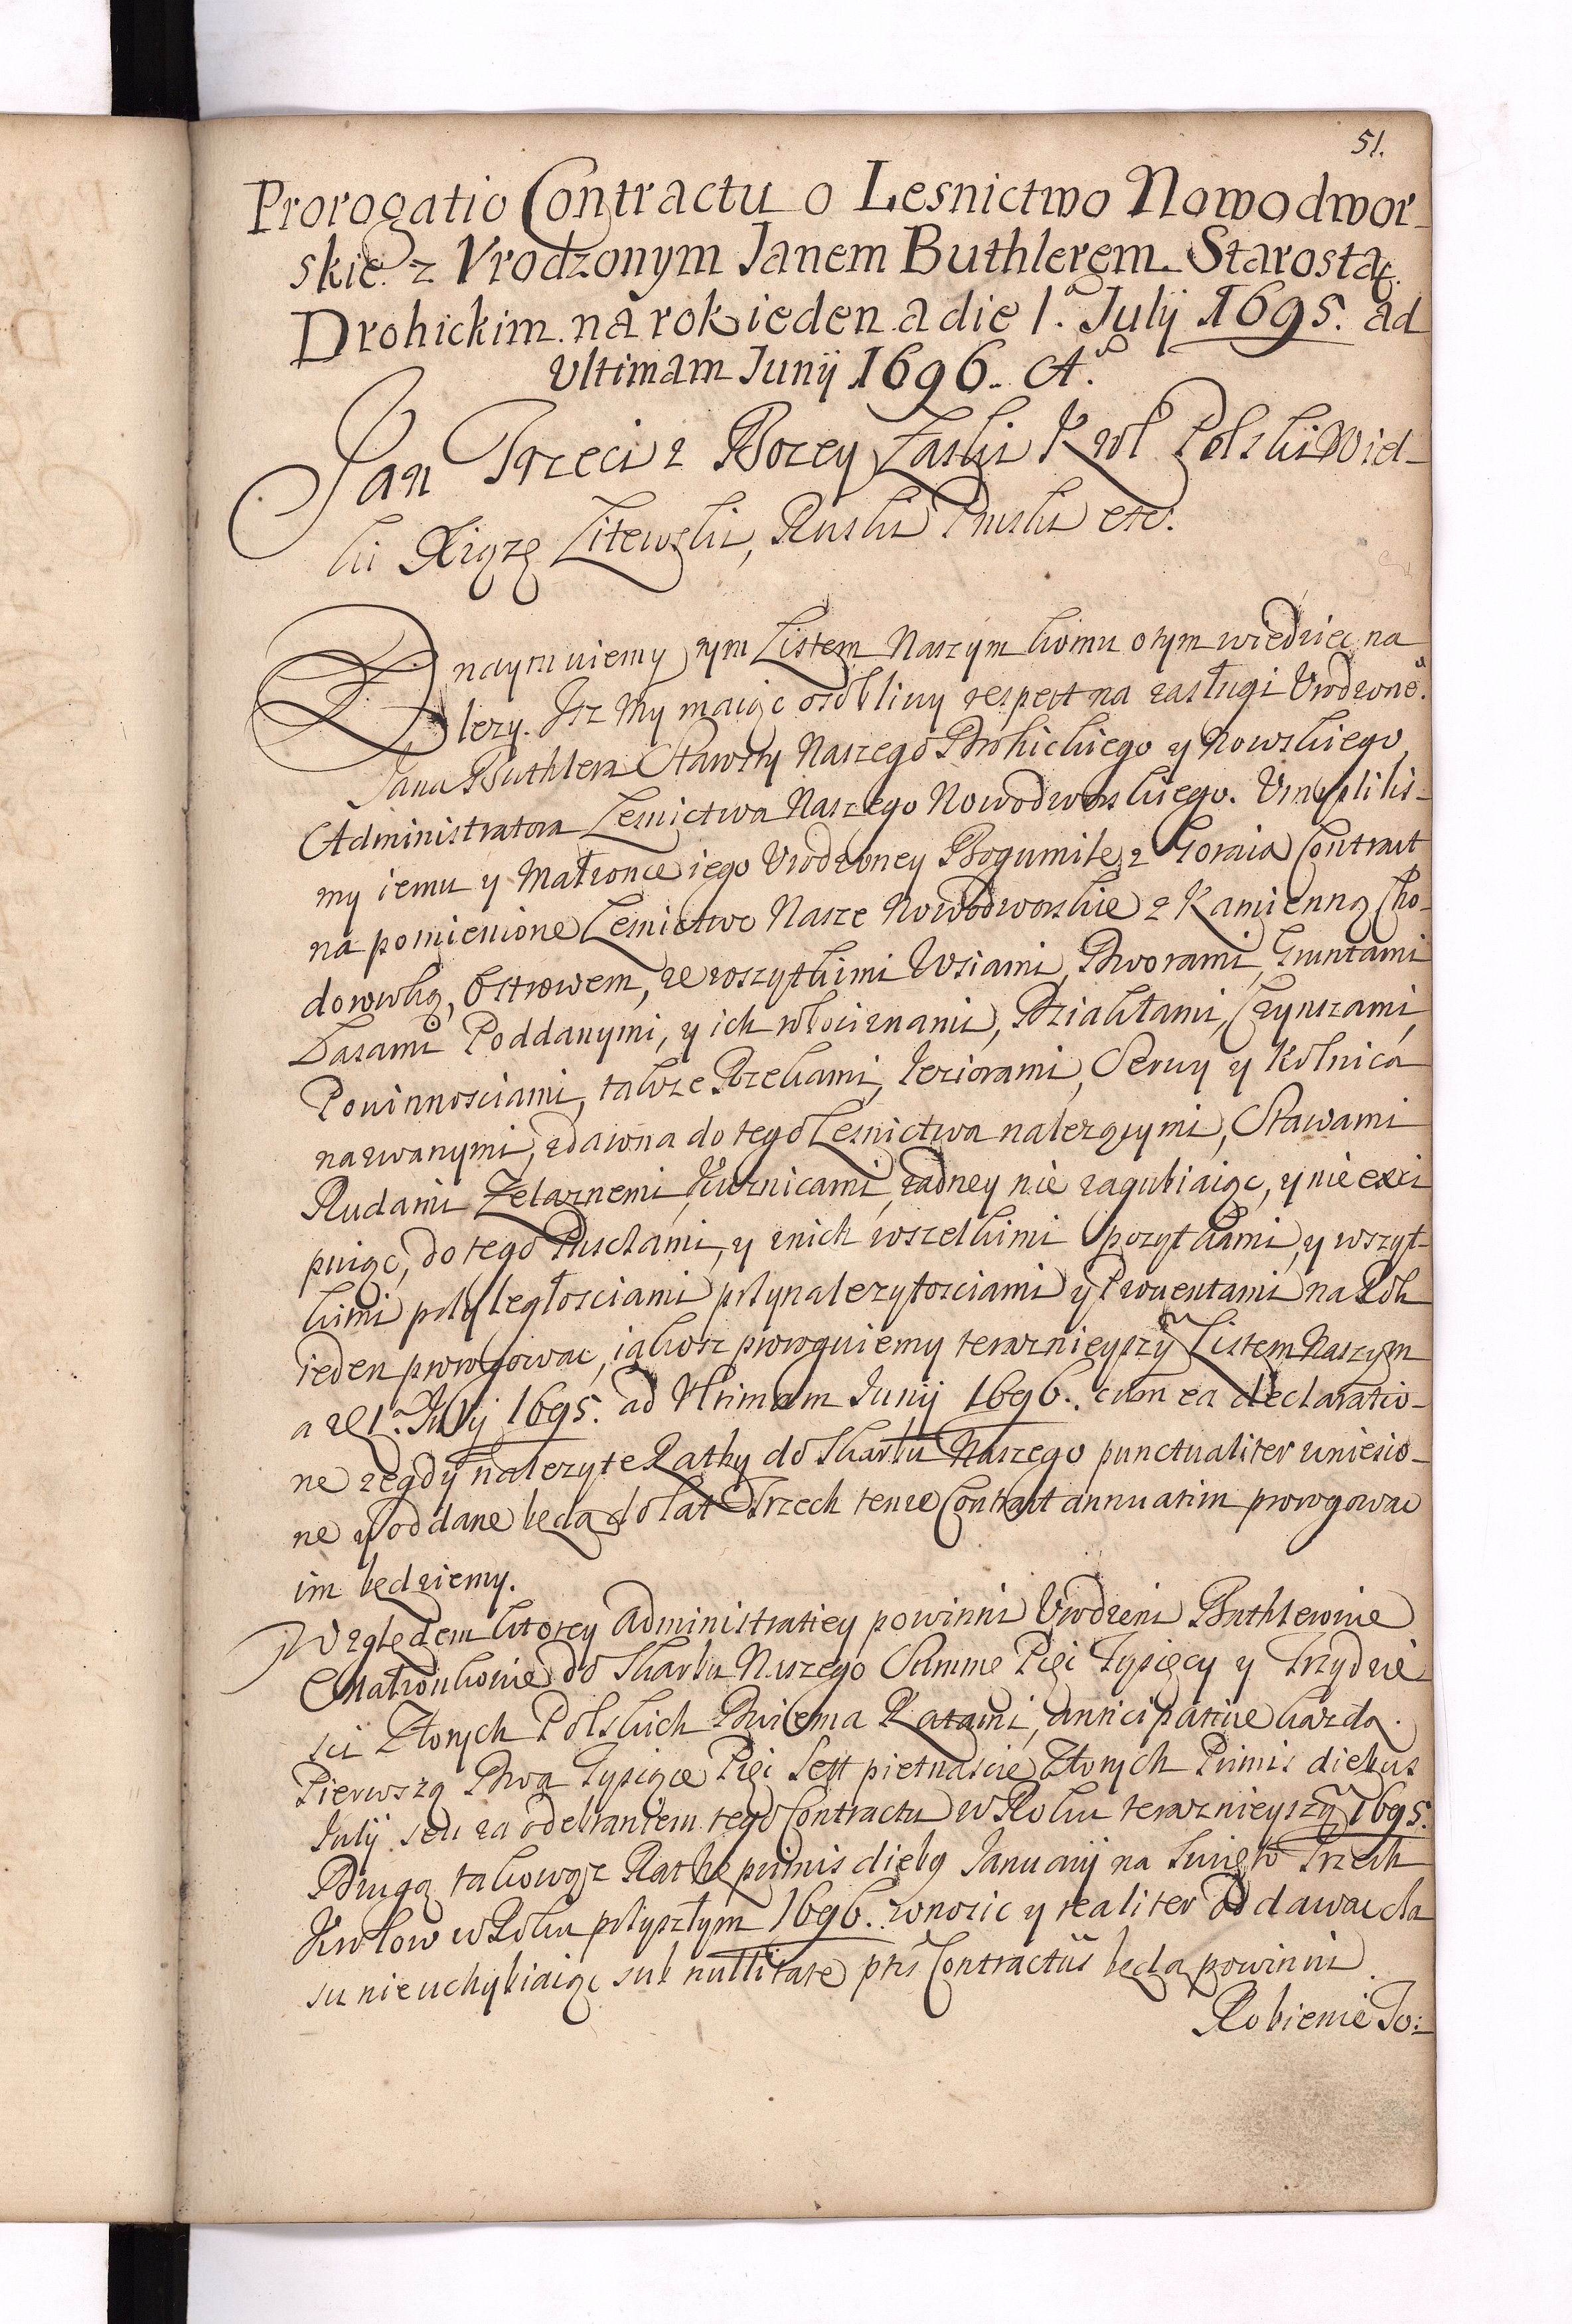 51.
Prorogatio Contractu o Lesnictwo Nowodwor-
skie z Vrodzonym Janem Buthlerem Starostą
Drohickim na rok ieden a die 1.a Julij 1695. ad
Vltimam Junij 1696. A.o
Jan Trzeci z Bozey Łaski Krol Polski Wiel-
ki Xiąże Litewski, Ruski Pruski etc.
Znaymuiemy tym Listem Naszym komu o tym wiedziec na
lezy. Isz My maiąc osobliwy respect na zasługi Vrodzone.o
Jana Buthlera Starosty Naszego Drohickiego y Nowskiego
Administratora Lesnictwa Naszego Nowodworskiego. Vmyslilis-
my iemu y Małzonce iego Vrodzoney Bogumile z Goraia Contract
na pomienione Lesnictwo Nasze Nowodworskie z Kamienną Cho-
dorowką, Ostrowem, ze wszytkimi Wsiami, Dworami, Gruntami
Lasami Poddanymi, y ich włocznami, Dziakłami, Czynszami,
Powinnosciami, takze Rzekami, Jeziorami, Serwy y Kolnica
nazwanymi, zdawna do tego Lesnictwa nalezącymi, Stawami
Rudami Zelaznemi, Kuznicami, zadney nie zagubiaiąc, y nie exci
puiąc, do tego Puscłami, y z nich wszelkimi pozytkami, y wszyt-
kimi przyległosciami przynalezytosciami y Prowentami na Rok
ieden prorogowac, iakosz proroguiemy teraznieyszym Listem Naszym
a die 1.a Julij 1695. ad Vltimam Junij 1696. cum ea declaratio-
ne ze gdy nalezyte Rathy do Skarbu Naszego punctualiter wniesio-
ne y oddane będą do lat Trzech tenze Contract annuatim prorogowac
im będziemy.
Względem ktorey Administratiey powinni Vrodzeni Buthlerowie
Małzonkowie do Skarbu Naszego Summe Pięc Tysięcy y Trzydzie
sci Złotych Polskich Dwiema Ratami, anticipative kazdą.
Pierwszą Dwa Tysiące Pięc Sett pietnascie Złotych Primis diebus
Julij seu za odebraniem tego Contractu w Roku teraznieyszym 1695.
Drugą takowąsz Rathę primis dieb9 Januarij na Swięto Trzech
Krolow w Roku przyszłym 1696. wnosic y realiter oddawac cza
su nie uchybiaiąc sub nullitate pntis Contractus będą powinni
Robienie To: